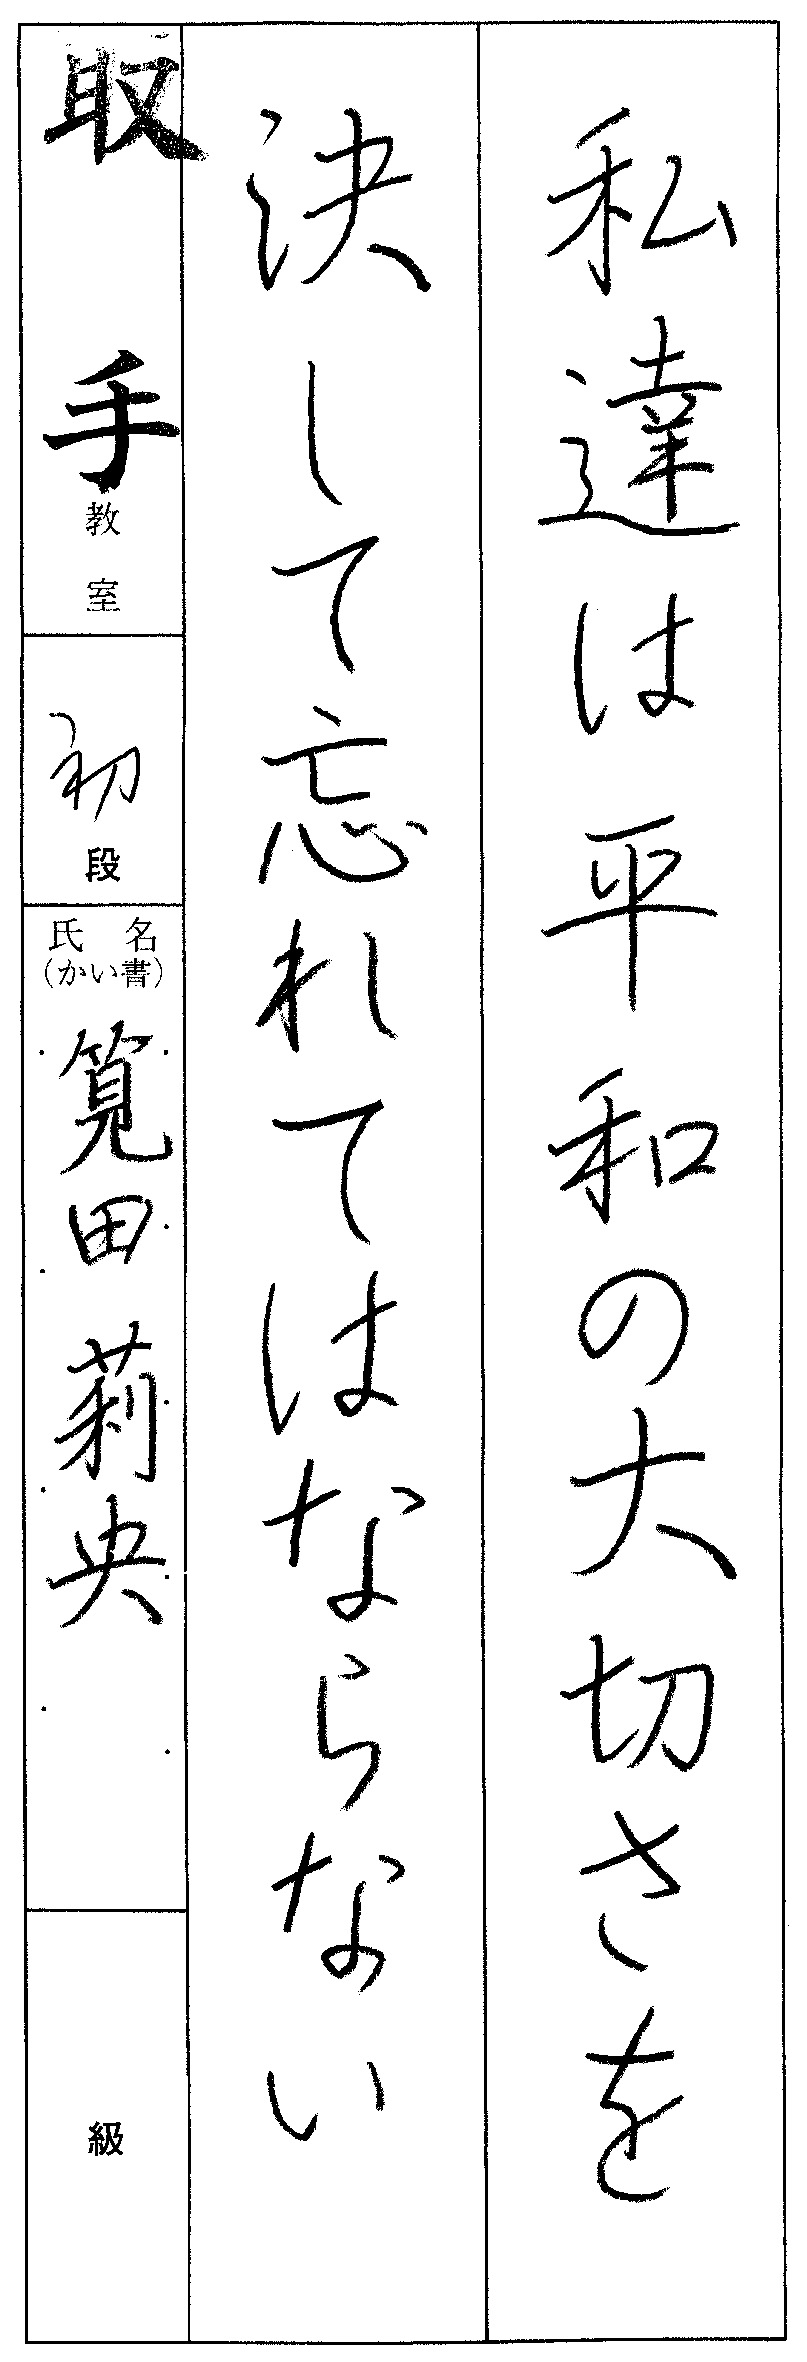 私達は平和の大切さを
決して忘れてはならない
取手教室
初段
氏名
(かい書)
筧田莉央
級